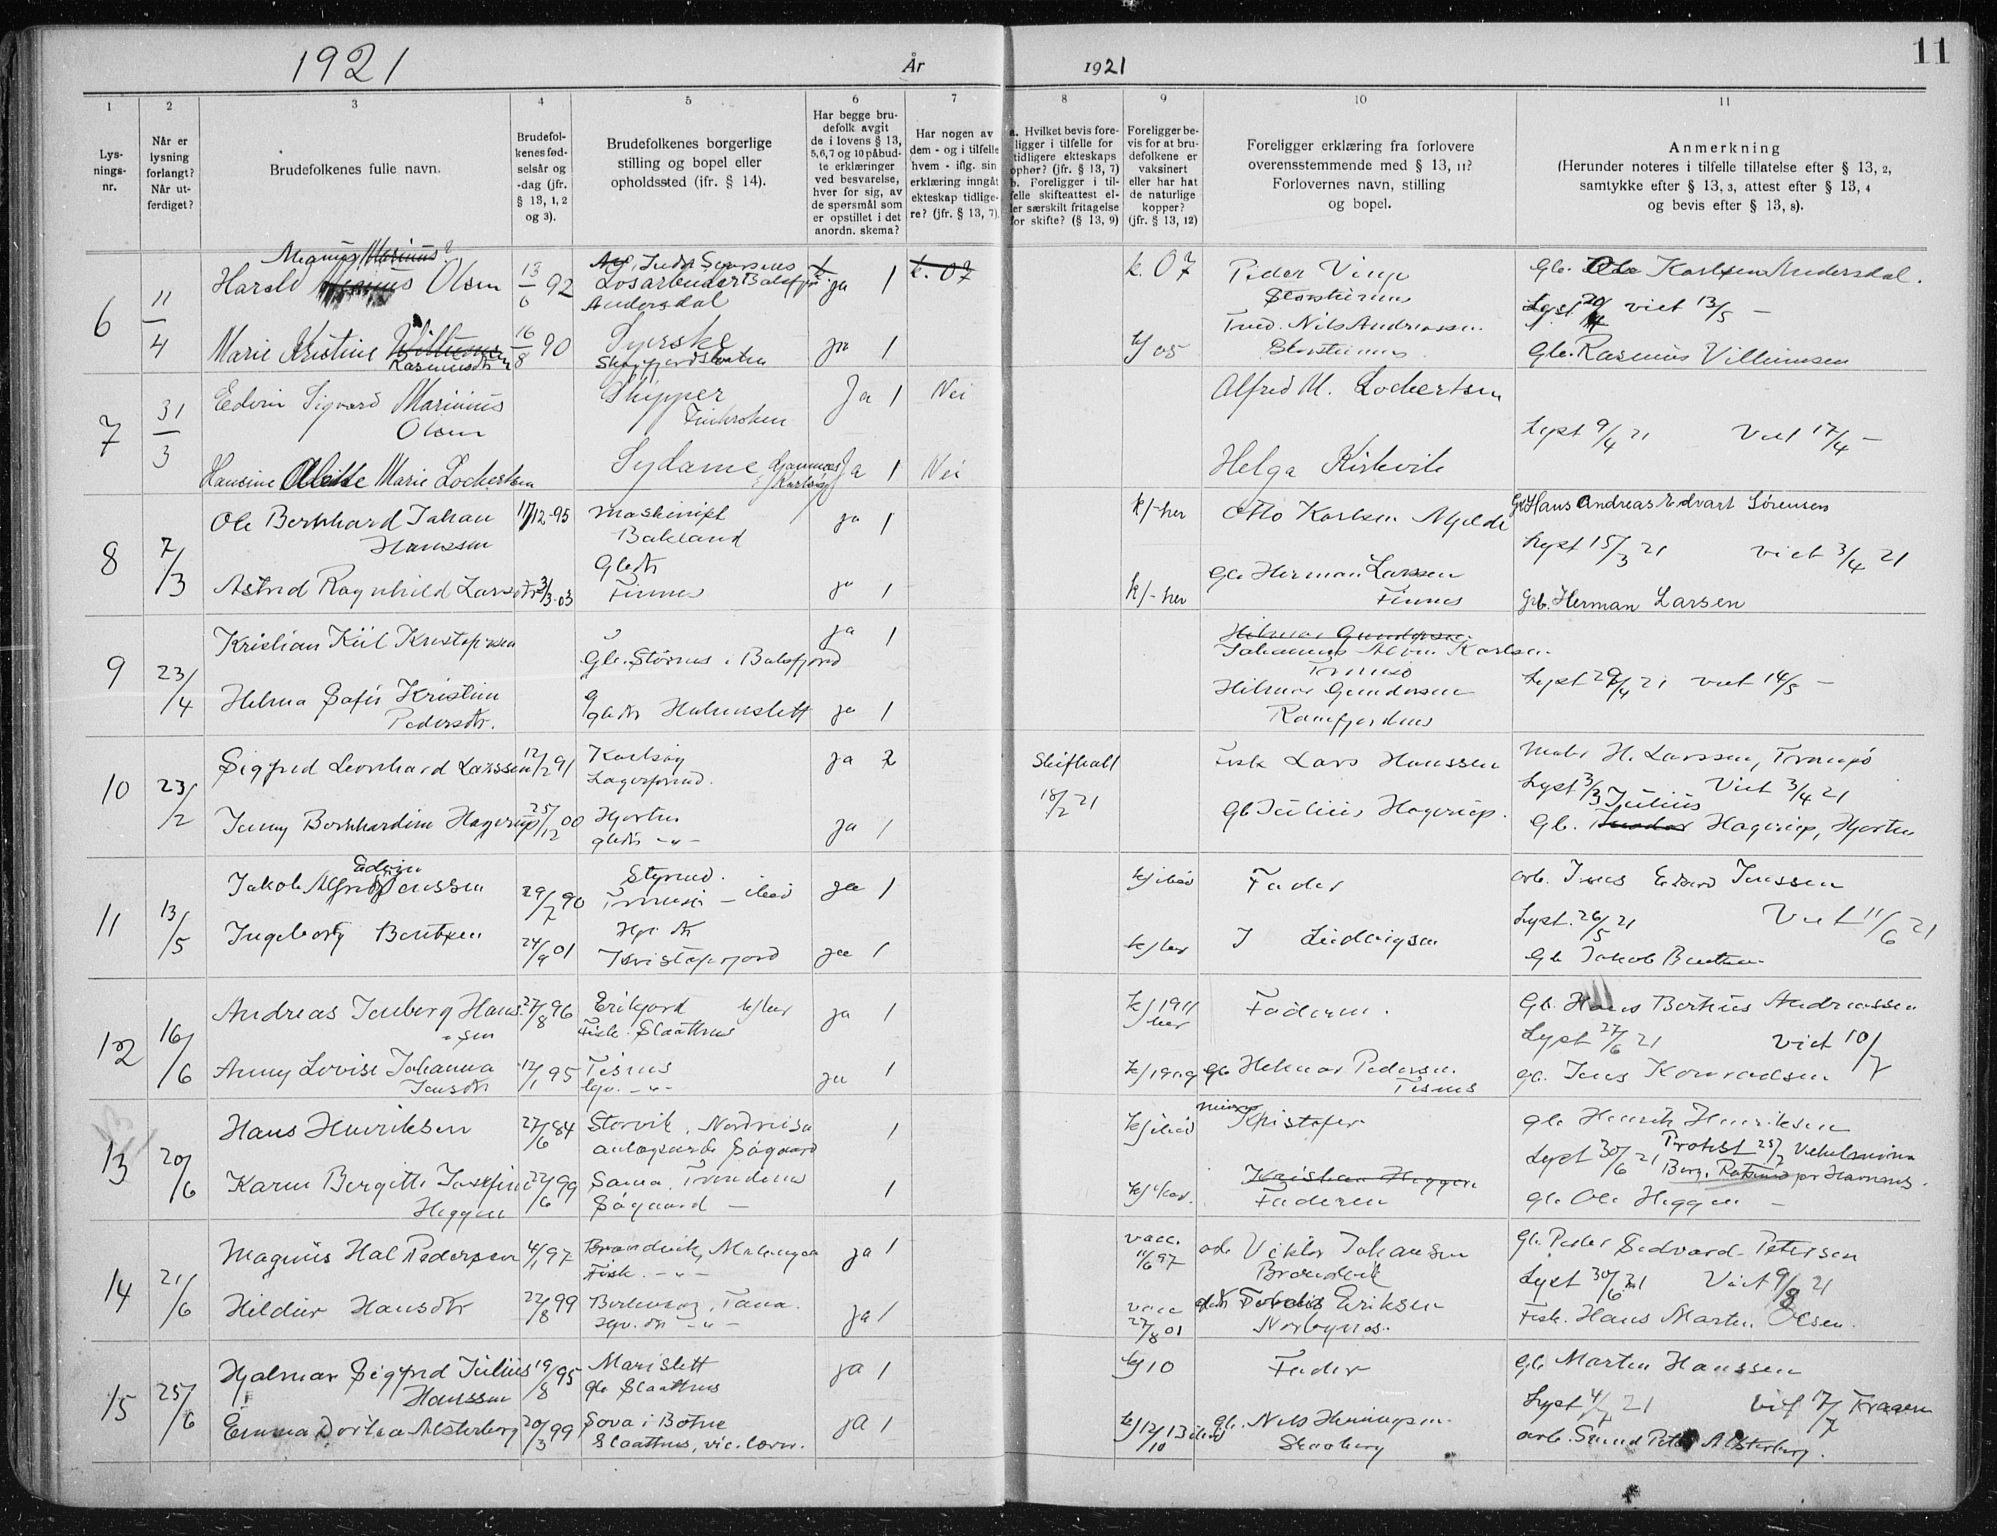 1921
År
1921
11
1
2
3
4
5
6
7
8
9
10
11
Lys-
nings-
nr.
Når er
lysning
forlangt?
Når ut-
ferdiget?
Brudefolkenes fulle navn.
Brudefol-
kenes fød-
selsår og
-dag (jfr.
§ 13, 1, 2
og 3).
Brudefolkenes borgerlige
stilling og bopel eller
opholdssted (jfr. § 14).
Har begge bru-
defolk avgit
de i lovens § 13,
5,6,7 og 10 påbud-
te erklæringer
ved besvarelse,
hver for sig, av
de spørsmål som
er opstillet i det
anordn. skema?
Har nogen av
dem - og i tilfelle
hvem - iflg. sin
erklæring inngåt
ekteskap tidlige-
re? (jfr. § 13, 7).
a. Hvilket bevis fore-
ligger i tilfelle for
tidligere ekteskaps
ophør? (jfr. § 13, 7)
b. Foreligger i til-
felle skifteattest el-
ler særskilt fritagelse
for skifte? (§ 13, 9)
Foreligger be-
vis for at bru-
defolkene er
vaksinert
eller har hat
de naturlige
kopper?
(jfr. § 13, 12)
Foreligger erklæring fra forlovere
overensstemmende med § 13, 11?
Forlovernes navn, stilling
og bopel.
Anmerkning
(Herunder noteres i tilfelle tillatelse efter § 13, 2,
samtykke efter § 13, 3, attest efter § 13, 4
og bevis efter § 13, 8).
6
11/4
Magnus Marinus?
Harald Olsen
13/6 92
Losarbeider Balsfj
Andersdal
ja 1
k. 07
k. 07
Peder Vinje
Storsteinnes
Gb. Ole Karlsen Andersdal.
Lyst 20/4 viet 13/5 -
Marie Kristine Willumsen
Rasmusdtr
16/8 90
Syerske
ja 1
k/ 05
Nils Andreassen
Storsteinnes
Gb. Rasmus Villumsen
7
31/3
Edvin Sigvard Marinius
Olsen
Skipper
Finkroken
Ja 1
Nei
Alfred M. Lockertsen
Lyst 9/4 21 Viet 17/4 -
Hansine Alette Marie Lockertsen
Sydame
Karlsøy
Ja 1
Nei
Helga Kirkvik
8
7/3
Ole Bernhard Johan
Hanssen
17/12-95
Maskinist
Bakland
ja 1
k/- her
Otto Karlsen Mjelde
Gb Hans Andreas Edvart Sørensen
Lyst 15/3 21 viet 3/4 21
Astrid Ragnhild Larsdtr
3/3-03
Gbdtr
Finnes
ja 1
k/- her
Gb Herman Larssen
Finnes
Gb. Herman Larsen
9
23/4
Kristian Kiil Kristofersen
Gb. Størnes i Balsfjord
ja 1
Hilmar Gundersen
Johannes Alvin Karlsen
Tromsø
Lyst 29/4 21 viet 14/5 -
Helma Sofie Kristine
Pedersdtr.
gbdtr Holmeslett
ja 1
Hilmar Gundersen
Ramfjordnes
10
23/2
Sigfred Leonhard Larssen
12/2 91
Karlsøy
Lagerformd.
ja 2
Skifteatt
18/2 21
Fisk Lars Hanssen
H. Larssen, Tromsø
Lyst 3/3 Viet 3/4 21
Jenny Bernhardine Hagerup
25/12 00
Hjortnes
gbdtr -"-
ja 1
Gb Julius Hagerup.
Julius
Gb. Hagerup, Hjortnes
11
13/5
Edvin
Jakob Alfred Jenssen
29/7 90
Styrmd.
Tromsø -
ja 1
Fader
arb. Jens Edvard Jenssen
Lyst. 26/5 21 Viet 11/6 21
Ingeborg Bentzen
24/9 01
Hpi dtr
Kristoferjord
ja 1
k/ her
J Ludvigsen
Gb Jakob Bentzen
12
16/6
Andreas Jenberg Hans
sen
27/8 96
Erikjord k/ her
Fisk. Slaattnes
ja 1
k/ 1911
her
Faderen.
Gb. Hans Bertius Andreassen
Lyst 27/6 21 Viet 10/7
Anny Lovise Johanna
Jensdtr
12/1 95
Tisnes
hpv. -"-
ja 1
k/ 1909
gb Helmar Pedersen
Tisnes
gb. Jens Konradsen
13
20/6
Hans Henriksen
27/6 84
Storvik, Nordreisa
Søgaard
1
Kristofer
gb Henrik Henriksen
Lyst 30/6 21 Protest 25/7
Karen Bergitte Josefine
Heggen
22/6 99
Sama, Trondenes
Søgaard -
1
Kristian Heggen
Faderen
gb Ole Heggen -
14
21/6
Magnus Hal Pedersen
4/1 97
Brandvik, Malangen
Fisk. -"-
ja 1
vacc.
11/6 97
arb Viktor Johansen
Brandvik
gb. Peder Sedvard Petersen
Lyst 30/6 21 Viet 9/8 21
Hildur Hansdtr
22/8 99
Berlevaag, Tana.
Hpv. dtr -"-
ja 1
vacc
27/8 01
Eriksen
Norbynes.
Fisk. Hans Martin Olsen.
15
25/6
Hjalmar Sigfred Julius
Hanssen
19/8 95
Marislett
gb Slaattnes
ja 1
k/ 10
Fader
Gb Martin Hanssen
Lyst 4/7 21 viet 17/7
Emma Dortea Alsterberg
20/3 99
Sova i Botne
Slaattnes, vic. lærer.
ja 1
k/ 12/10 13
gb. Nils Henningsen
Skaaberg
arb. Peter Alsterberg.